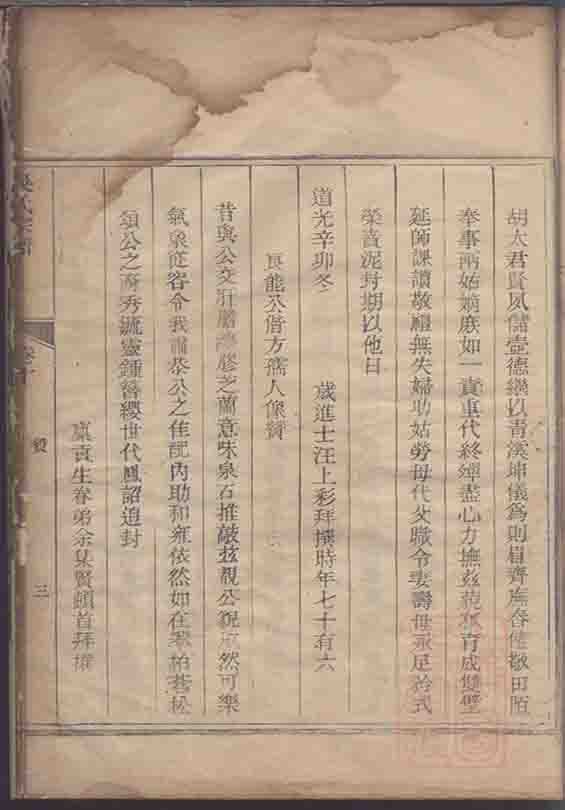 胡太君賢夙儲壼德纘以青溪坤儀為則眉齊廡舂健敬田陌
奉事兩姑嫡庶如一責重代終殫盡心力撫茲藐孤育成雙璧
延師課讀敬禮無失婦助姑勞母代父職令妻壽母永足矜式
榮啻泥封期以他日
道光辛卯冬 歲進士汪上彩拜撰時年七十有六
良能公偕方孺人像贊
昔與公交肝膽漆膠芝蘭意味泉石推敲茲親公貌 然可樂
氣象從容令我肅恭公之佳配內助和雍依然如在 柏蒼松
頌公之 秀毓靈鍾簪纓世代鳳詔追封
廩貢生眷弟余 賢頓首拜撰
吳氏宗譜
卷十
贊
三